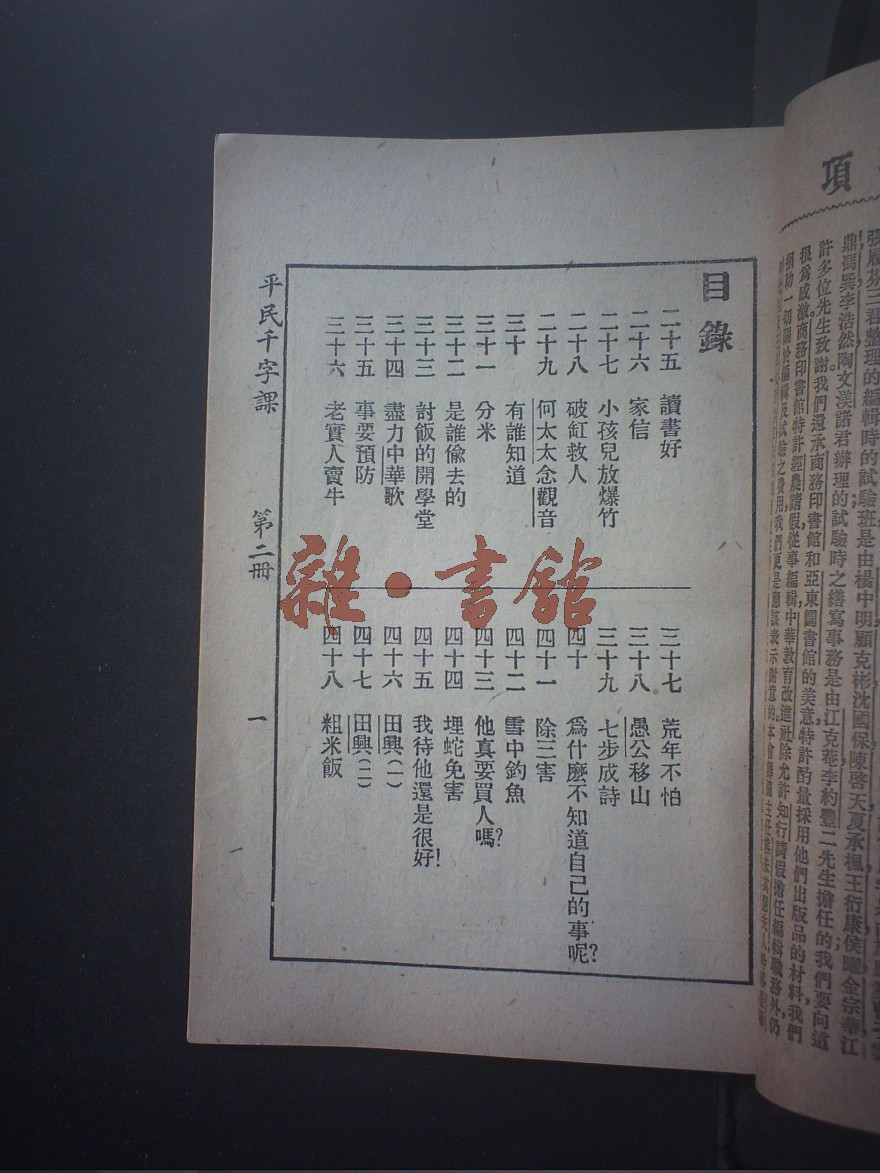 目錄
二十五 讀書好
二十六 家信
二十七 小孩兒放爆竹
二十八 破缸救人
二十九 何太太念觀音
三十 有誰知道
三十一 分米
三十二 是誰偷去的
三十三 討飯的開學堂
三十四 盡力中華歌
三十五 事要預防
三十六 老實人賣牛
三十七 荒年不怕
三十八 愚公移山
三十九 七步成詩
四十 爲什麽不知道自己的事呢？
四十一 除三害
四十二 雪中釣魚
四十三 他真要買人嗎？
四十四 埋蛇免害
四十五 我待他還是很好！
四十六 田興（一）
四十七 田興（二）
四十八 粗米飯
平民千字課 第二冊 一
雜·書館
項
張展芬三君整理的編輯時的試驗班是由楊中明顧克彬沈國保陳啓天夏承楓王衍康侯曜金宗華江
鼎馮巽李浩然陶文渼諸君辦理的試驗時之繕寫事務是由江克菴李約豐二先生擔任的我們要向這
許多位先生致謝。我們還承商務印書館和亞東圖書館的美意特許酌量採用他們出版品的材料，我們
很爲感激商務印書館特許經農請假從事編輯中華教育改進社除允許知行請假擔任編輯職務外仍
捐助一切關於編輯及試驗之費用，我們更是應該表示謝意的